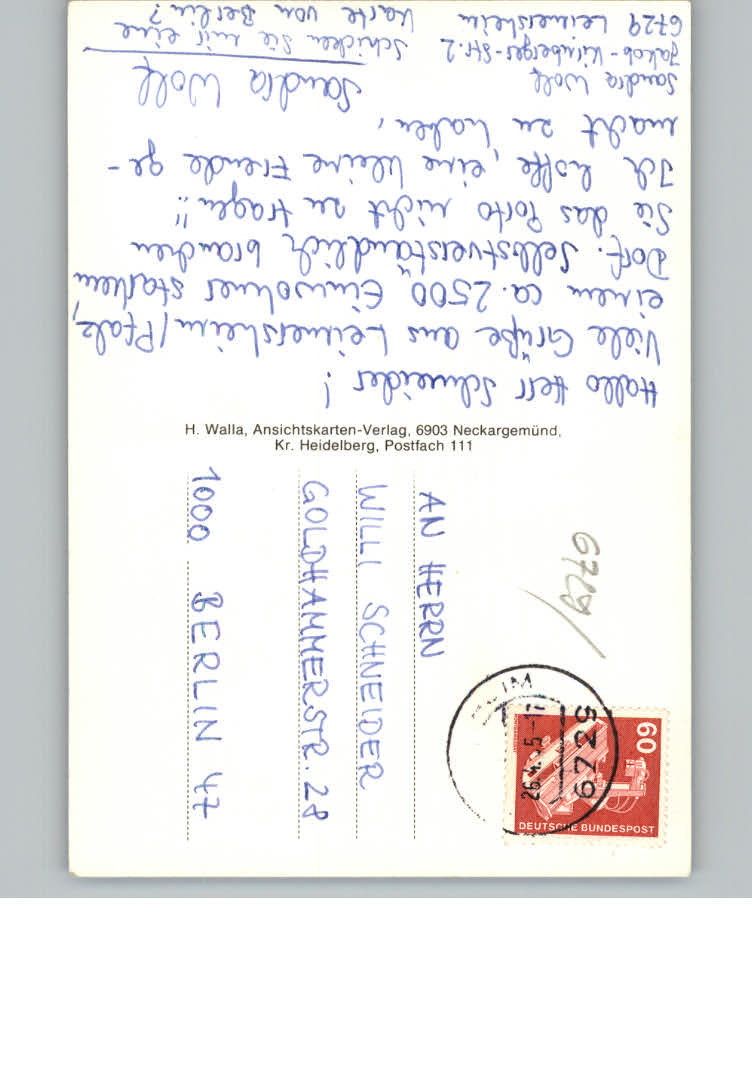 Hallo Herr Schneider!
Viele Grüße aus Leimersheim/Pfalz,
einem ca. 2500 Einwohner starken
Dorf. Selbstverständlich brauchen
Sie das Porto nicht zu tragen!!
Ich hoffe, eine kleine Freude ge-
macht zu haben,
Sandra Wolf
Sandra Wolf
Jakob-Kirnberger-Str. 2
6729 Leimersheim
Schicken Sie mir eine
Karte von Berlin?
H. Walla, Ansichtskarten-Verlag, 6903 Neckargemünd,
Kr. Heidelberg, Postfach 111
AN HERRN
WILLI SCHNEIDER
GOLDHAMMERSTR. 28
1000 BERLIN 47
6729
60
DEUTSCHE BUNDESPOST
6729